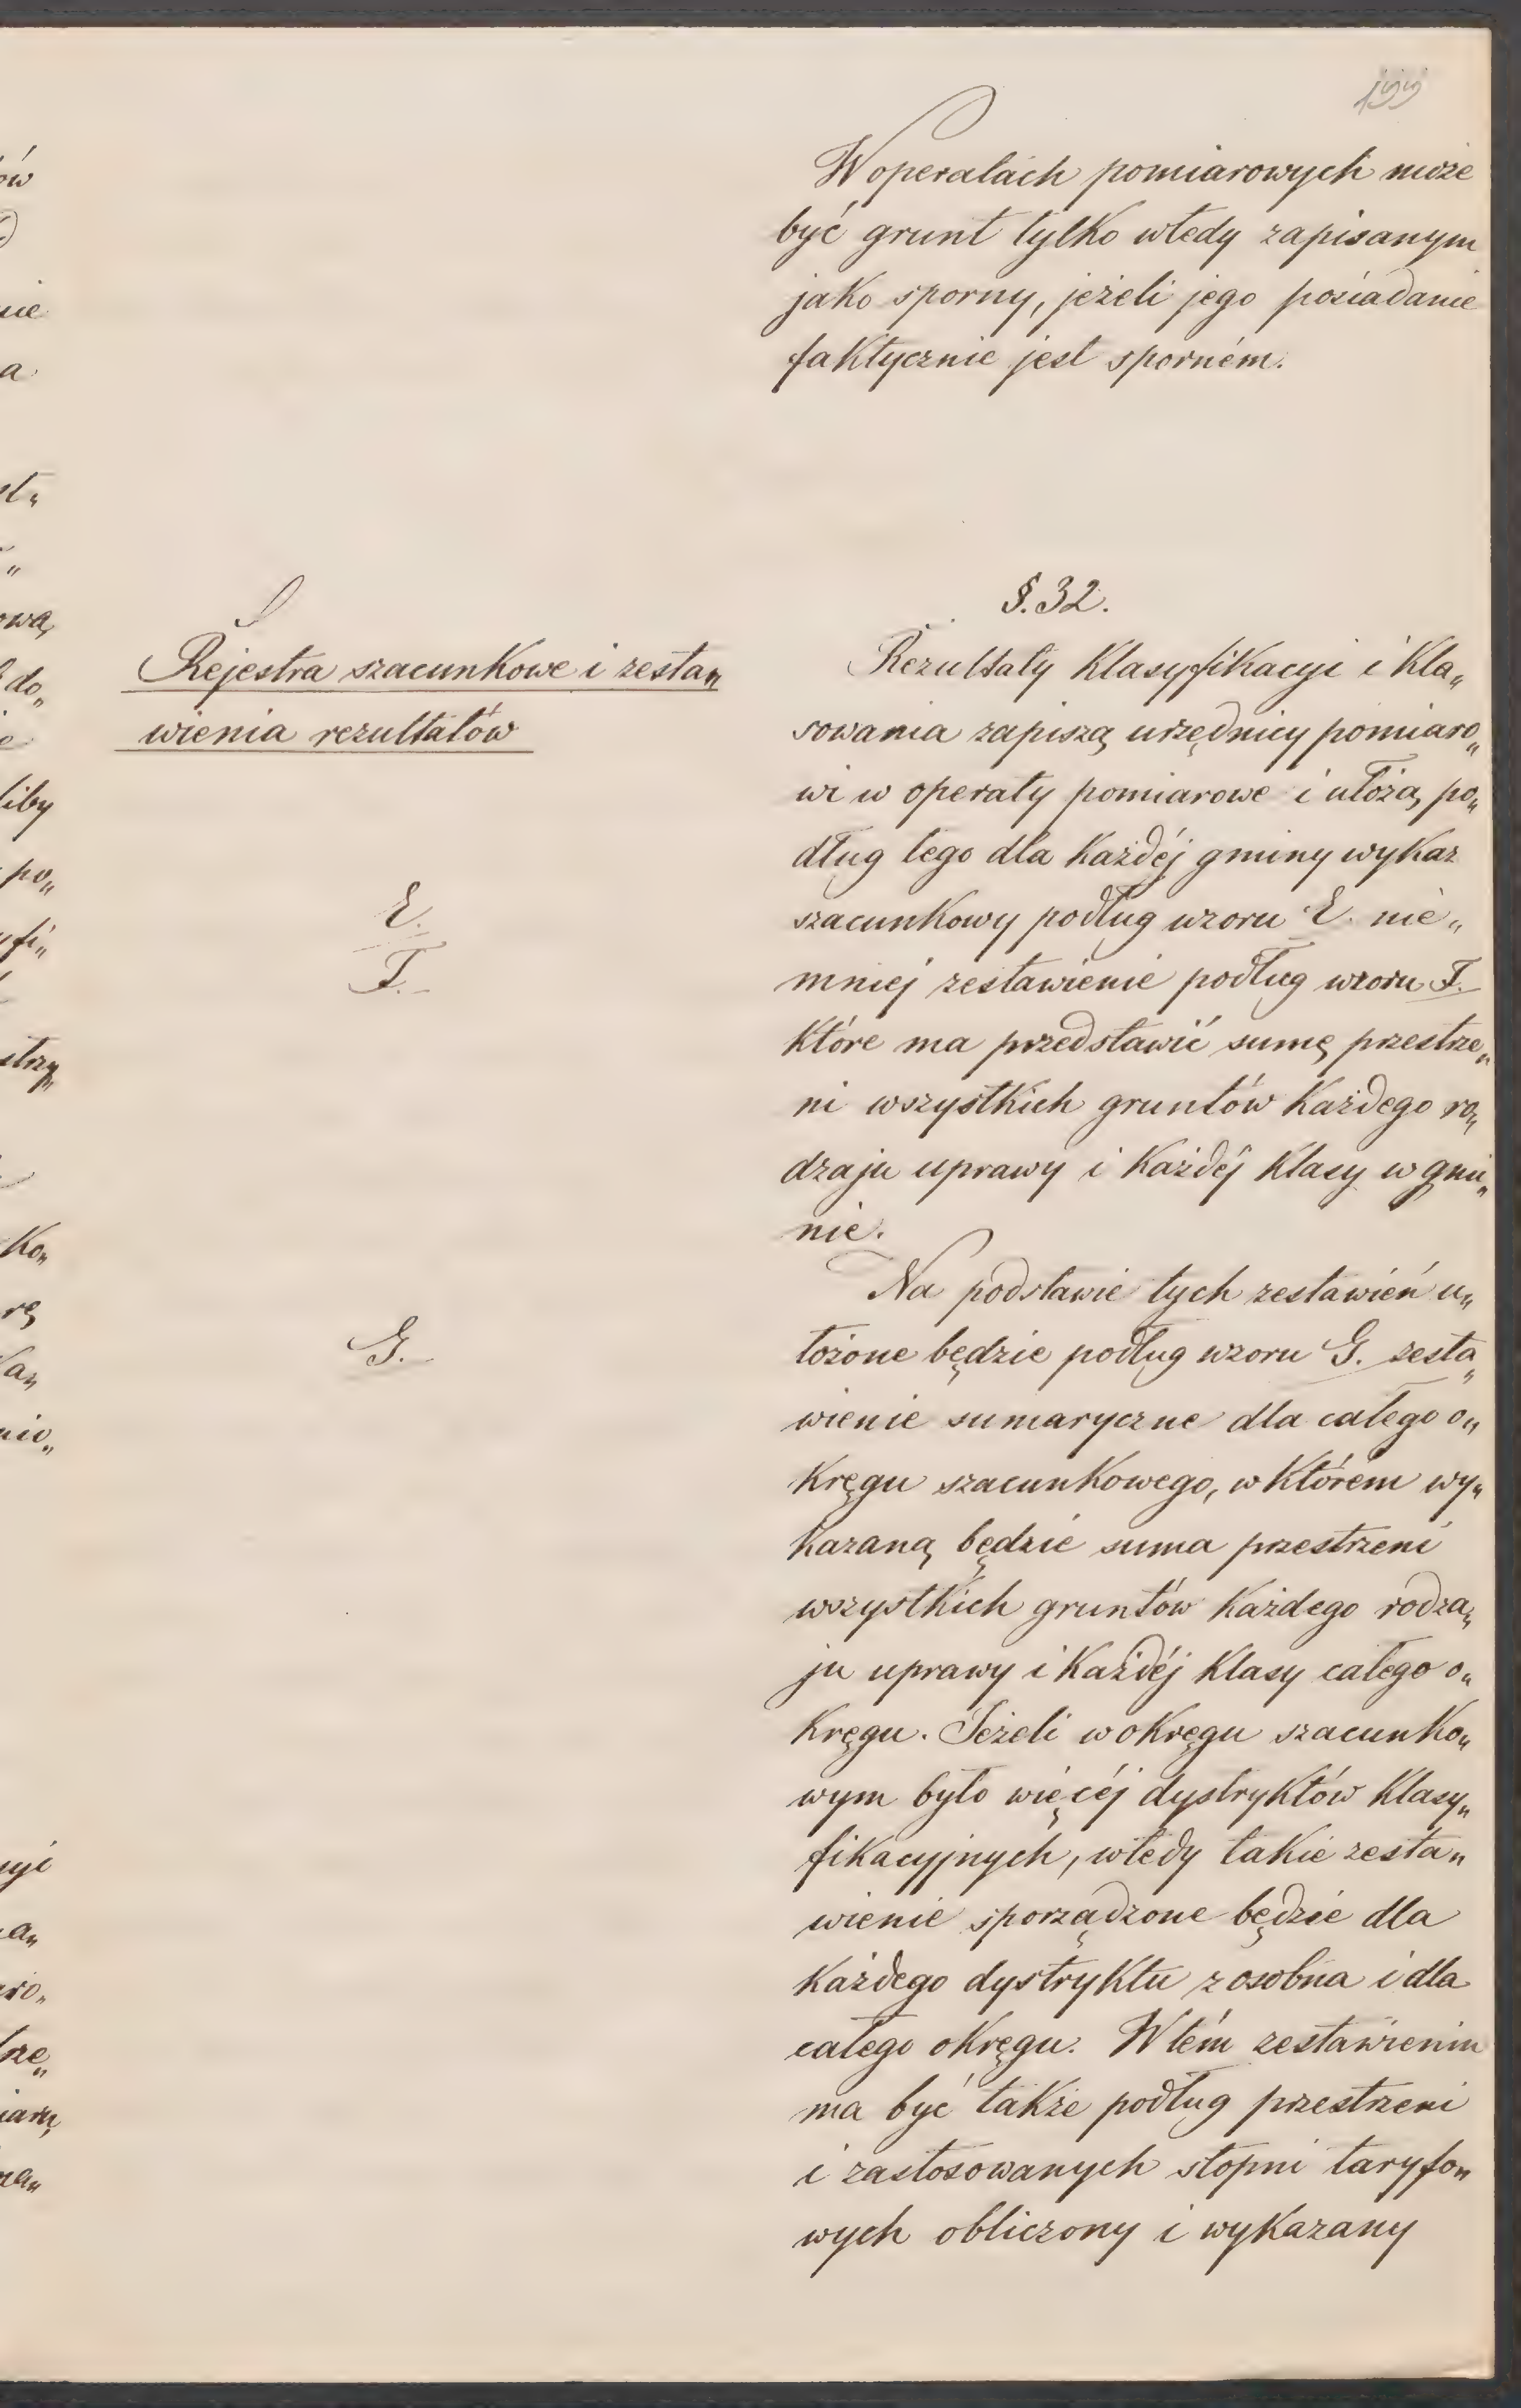 W operatach pomiarowych może
być grunt tylko wtedy zapisanym
jako sporny, jeżeli jego posiadanie
faktycznie jest sporném.
§. 32.
Rejestra szacunkowe i zesta„
wienia rezultatów
Rezultaty klasyfikacyi i kla„
sowania zapiszą urzędnicy pomiaro„
wi w operaty pomiarowe i ułożą po„
dług tego dla każdéj gminy wykaz
E.
szacunkowy podług wzoru E. nie„
F.
mniej zestawienie podług wzoru F.
które ma przedstawić sumę przestrze„
ni wszystkich gruntów każdego ro„
dzaju uprawy i każdéj klasy w gmi„
nie.
Na podstawie tych zestawień u„
G.
łożone będzie podług wzoru G. zesta„
wienie sumaryczne dla całego o„
kręgu szacunkowego, w którem wy„
kazaną będzie suma przestrzeni
wszystkich gruntów każdego rodza„
ju uprawy i każdéj klasy całego o„
kręgu. Jeżeli w okręgu szacunko„
wym było więcéj dystryktów klasy„
fikacyjnych, wtedy takie zesta„
wienie sporządzone będzie dla
każdego dystryktu z osobna i dla
całego okręgu. W tém zestawieniu
ma być także podług przestrzeni
i zastosowanych stopni taryfo„
wych obliczony i wykazany